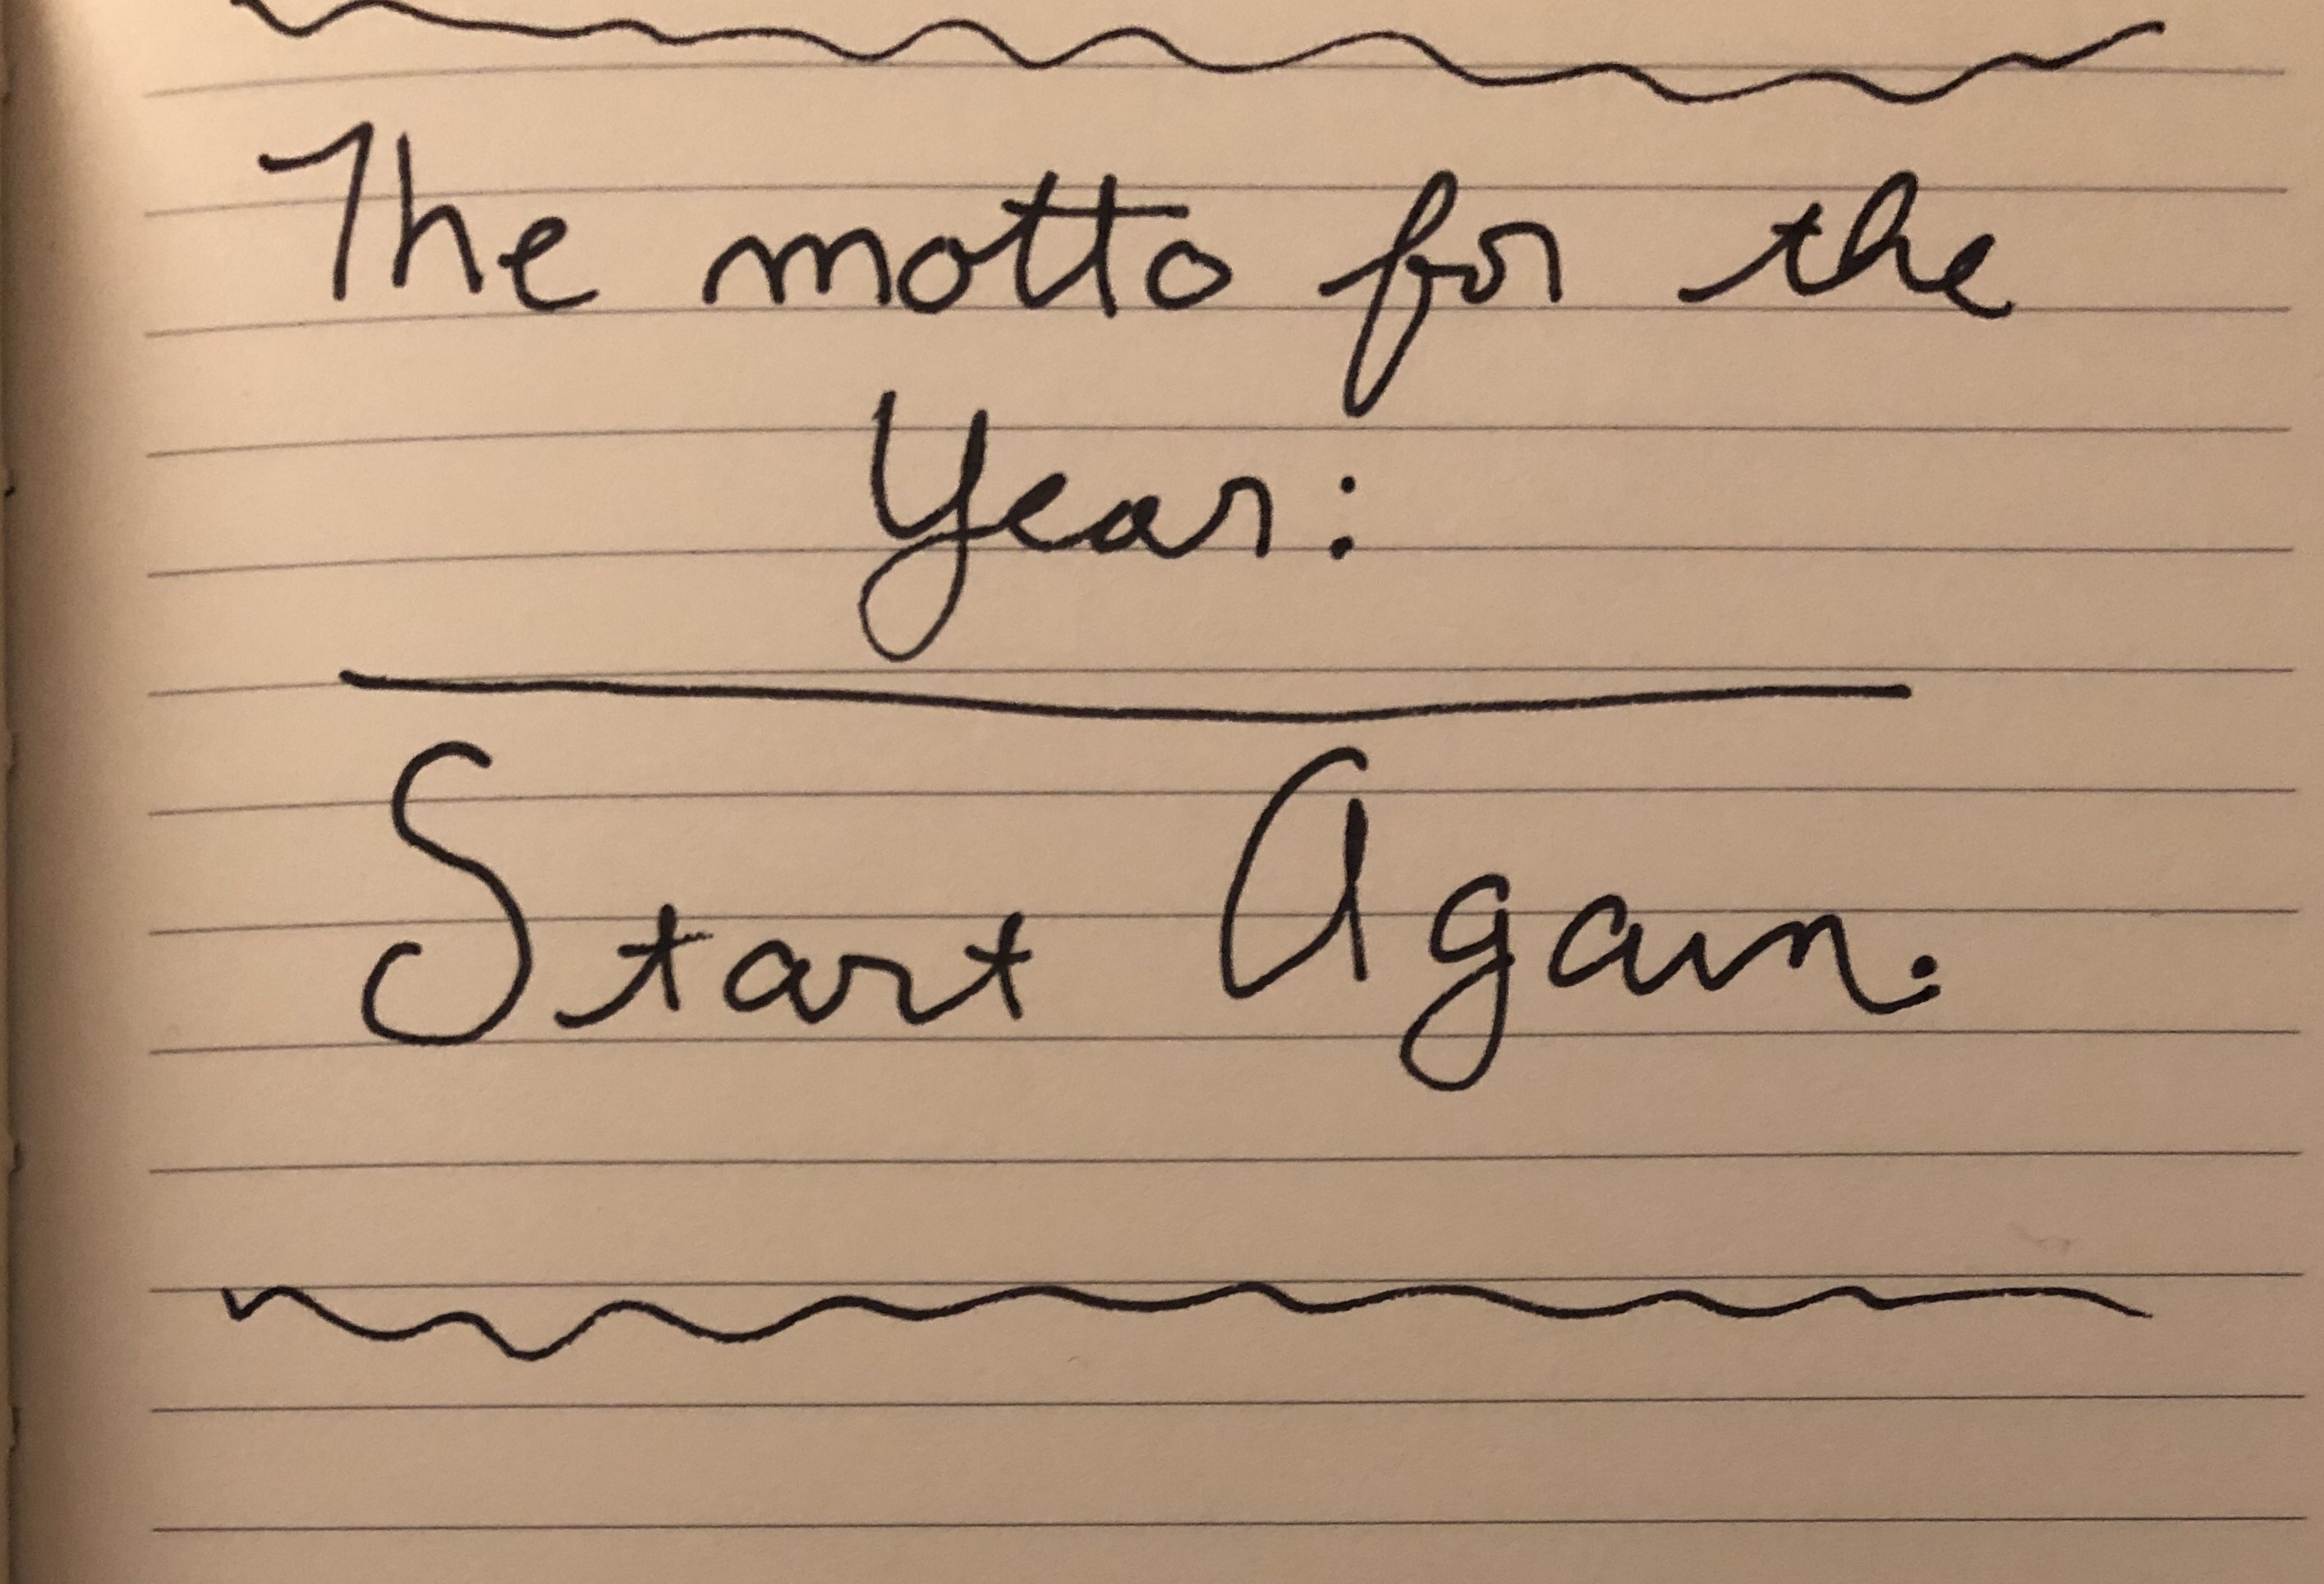 The motto for the
Year:
Start Again.